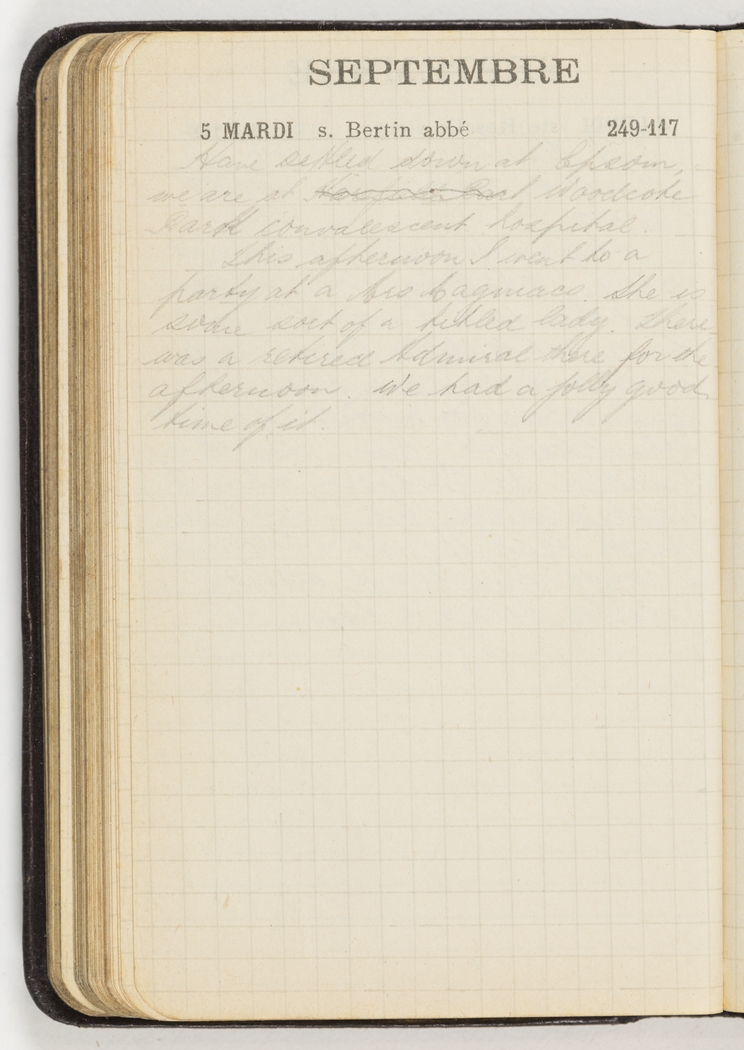 SEPTEMBRE
5 MARDI s. Bertin abbé 249-117
Have settled down at Epsom,
we are at Woodcote
Park convalescent hospital.
This afternoon I went to a
party at a Mrs Cagniacs. She is
some sort of a titled lady. There
was a retired Admiral there for the
afternoon. We had a jolly good
time of it.